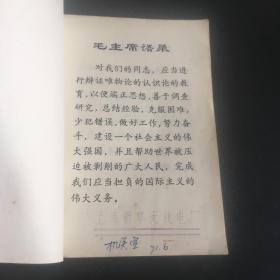 毛主席语录
对我们的同志，应当进
行辩证唯物论的认识论的教
育，以便端正思想，善于调查
研究，总结经验，克服困难，
少犯错误，做好工作，努力奋
斗，建设一个社会主义的伟
大强国，并且帮助世界被压
迫被剥削的广大人民，完成
我们应当担负的国际主义的
伟大义务。